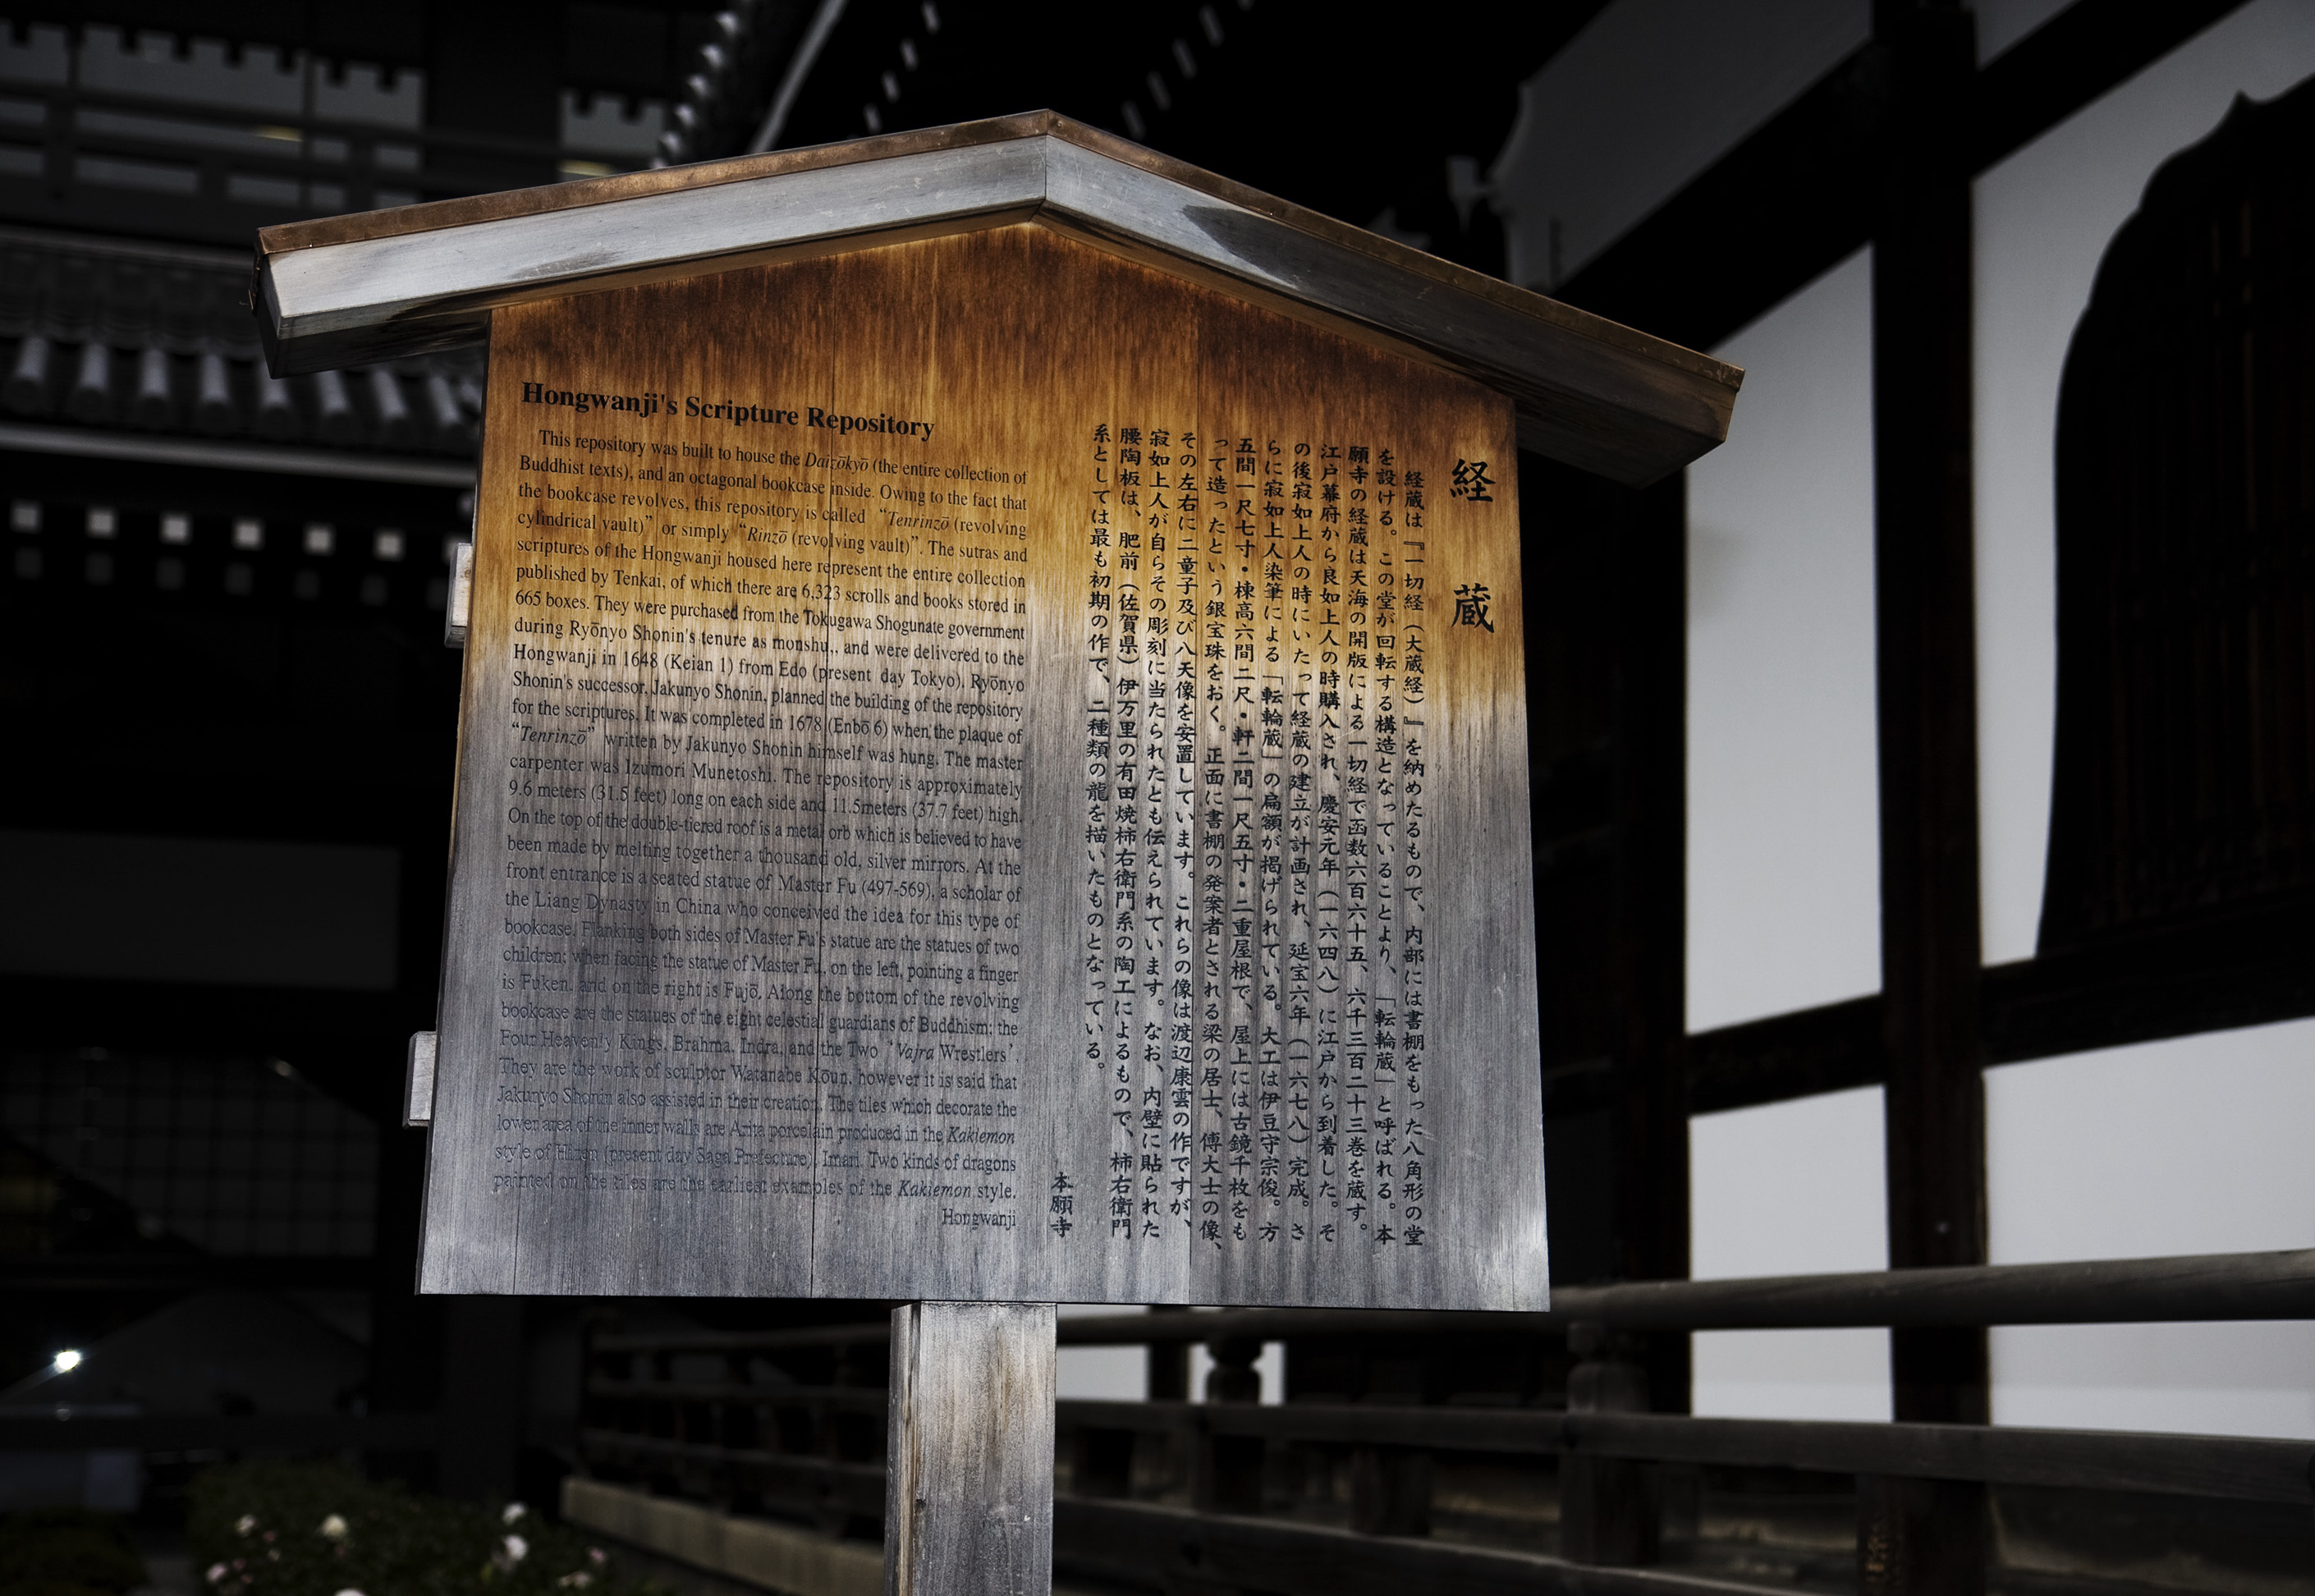 Hongwanji's Scripture Repository
This repository was built to house the Daizōkyō (the entire collection of
Buddhist texts), and an octagonal bookcase inside. Owing to the fact that
the bookcase revolves, this repository is called “Tenrinzō (revolving
cylindrical vault)” or simply “Rinzō (revolving vault)”. The sutras and
scriptures of the Hongwanji housed here represent the entire collection
published by Tenkai, of which there are 6,323 scrolls and books stored in
665 boxes. They were purchased from the Tokugawa Shogunate government
during Ryōnyo Shonin's tenure as monshu,, and were delivered to the
Hongwanji in 1648 (Keian 1) from Edo (present day Tokyo). Ryōnyo
Shonin's successor, Jakunyo Shonin, planned the building of the repository
for the scriptures. It was completed in 1678 (Enbō 6) when the plaque of
“Tenrinzō” written by Jakunyo Shonin himself was hung. The master
carpenter was Izumori Munetoshi. The repository is approximately
9.6 meters (31.5 feet) long on each side and 11.5meters (37.7 feet) high.
On the top of the double-tiered roof is a metal orb which is believed to have
been made by melting together a thousand old, silver mirrors. At the
front entrance is a seated statue of Master Fu (497-569), a scholar of
the Liang Dynasty in China who conceived the idea for this type of
bookcase. Flanking both sides of Master Fu's statue are the statues of two
children; when facing the statue of Master Fu, on the left, pointing a finger
is Fuken, and on the right is Fujō. Along the bottom of the revolving
bookcase are the statues of the eight celestial guardians of Buddhism: the
Four Heavenly Kings, Brahma, Indra, and the Two ‘Vajra Wrestlers’.
They are the work of sculptor Watanabe Kōun, however it is said that
Jakunyo Shonin also assisted in their creation. The tiles which decorate the
lower area of the inner walls are Arita porcelain produced in the Kakiemon
style of Hizen (present day Saga Prefecture), Imari. Two kinds of dragons
painted on the tiles are the earliest examples of the Kakiemon style.
Hongwanji
経蔵
経蔵は『一切経（大蔵経）』を納めたるもので、内部には書棚をもった八角形の堂
を設ける。この堂が回転する構造となっていることより、「転輪蔵」と呼ばれる。本
願寺の経蔵は天海の開版による一切経で函数六百六十五、六千三百二十三巻を蔵す。
江戸幕府から良如上人の時購入され、慶安元年（一六四八）に江戸から到着した。そ
の後寂如上人の時にいたって経蔵の建立が計画され、延宝六年（一六七八）完成。さ
らに寂如上人染筆による「転輪蔵」の扁額が掲げられている。大工は伊豆守宗俊。方
五間一尺七寸・棟高六間二尺・軒二間一尺五寸・二重屋根で、屋上には古鏡千枚をも
って造ったという銀宝珠をおく。正面に書棚の発案者とされる梁の居士、傅大士の像、
その左右に二童子及び八天像を安置しています。これらの像は渡辺康雲の作ですが、
寂如上人が自らその彫刻に当たられたとも伝えられています。なお、内壁に貼られた
腰陶板は、肥前（佐賀県）伊万里の有田焼柿右衛門系の陶工によるもので、柿右衛門
系としては最も初期の作で、二種類の龍を描いたものとなっている。
本願寺